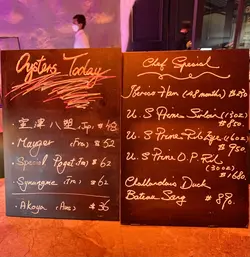 Oysters Today
室津八塑 (Jp) $ 48
Mauger (Fra) $ 52
Special Paget (Fra) $ 62
(Fra) $ 62
Akoya (Aus) $ 36
Chef Special
Iberico Ham (48 month) $
U.S Prime Sirloin (13oz)
$ 850
U.S Prime Rib Eye (16oz)
$ 950
U.S Prime O.P. Rib
(30oz)
$ 1680
Challandais Duck
$ 890